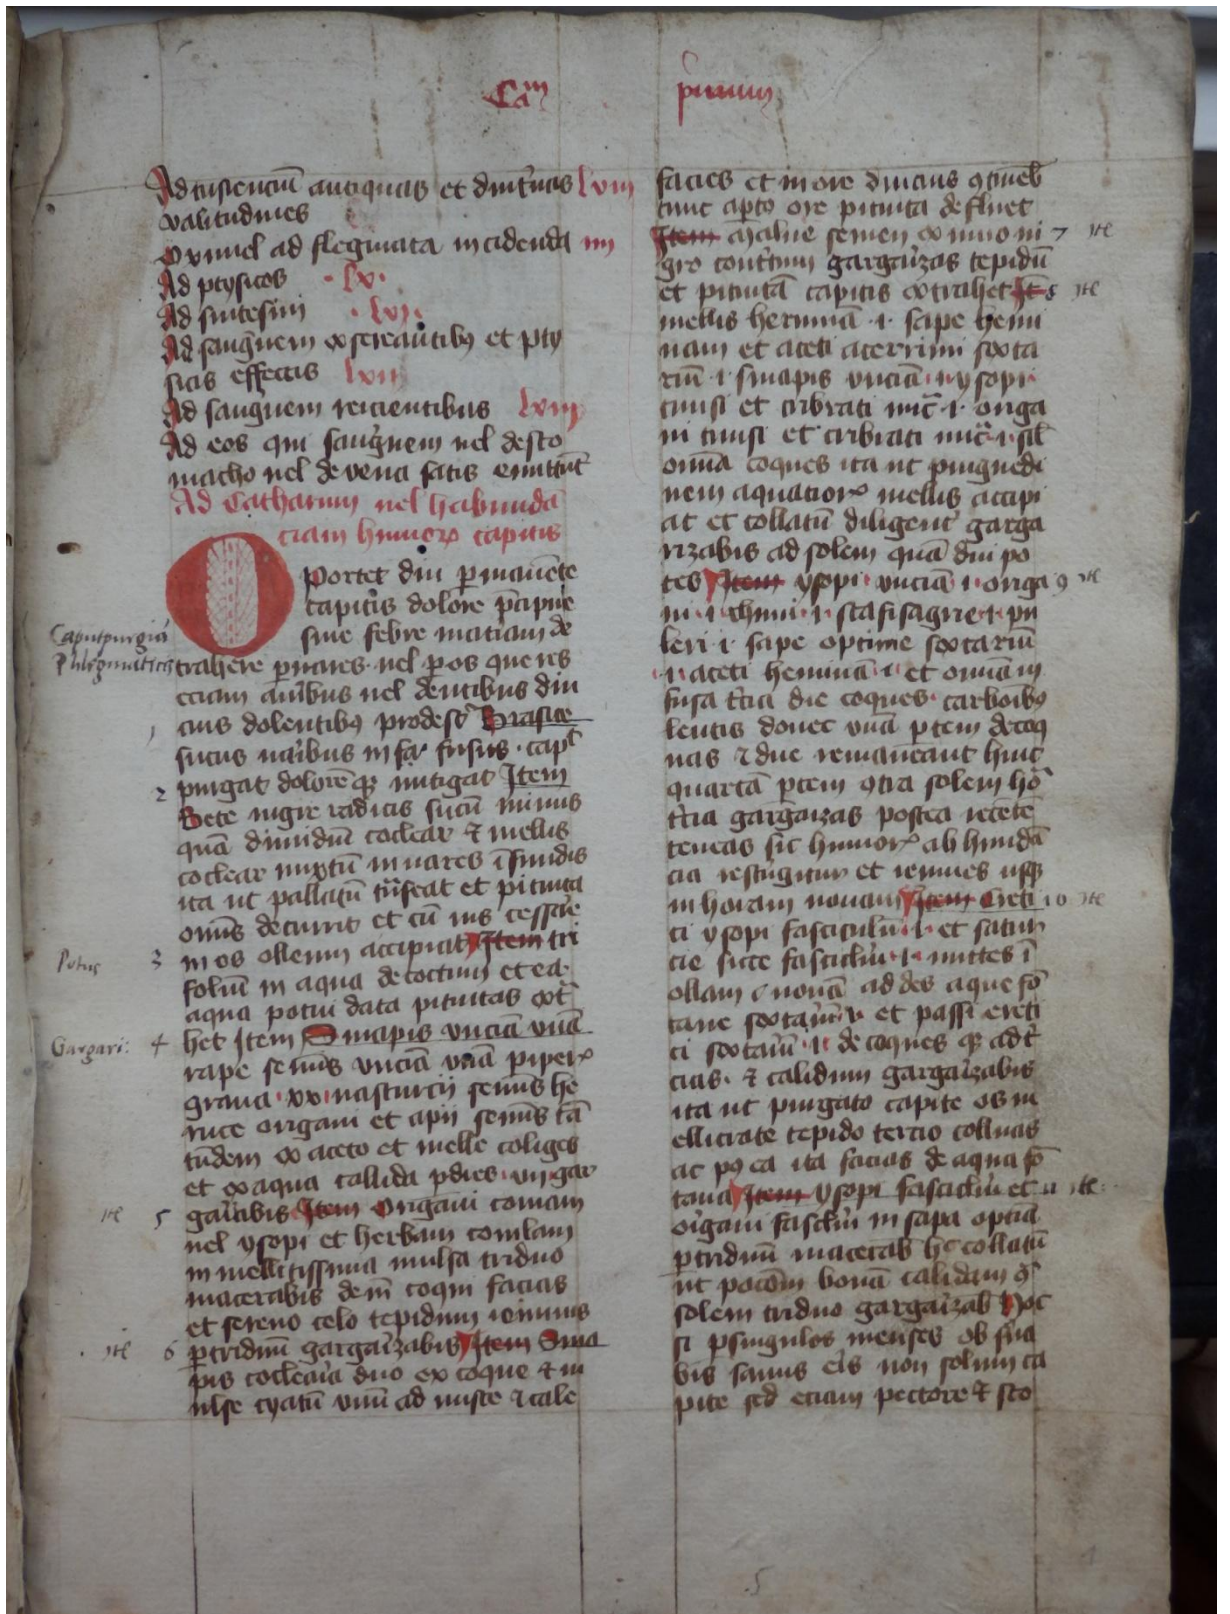 Cam primum
Ad tusiencium antiquas et diuturnas lviii
valitudines
Oximel ad flegmata incidenda iiii
Ad ptysicos .lx.
Ad sintesim .lxi.
Ad sanguinem exscreantibus et pty
sicis effectis lxii
Ad sanguinem reicientibus lxiii
Ad eos qui sanguinem uel desto
macho uel de vena satis emittunt
Ad Catharum uel habunda
ciam humorum capitis
Oportet diu permanente
capitis dolore precipue
sine febre materiam de
Caputpurgia
Phlegmaticis
trahere per nares uel per os que res
eciam auribus uel dentibus diu
cius dolentibus prodest Brasice
1
sucus naribus infusus capt
2
purgat dolorem que mitigat Item
Bete nigre radicis sucum minus
quam dimidium coclear et mellis
coclear mixtum in nares infundis
ita ut pallatum transeat et pituita
omnis decurrit et cum ius cessare
Potus 3
in os oleum accipiat Item tri
folium in aqua decoctum et ea
aqua potui data pituitas extra
Gargari: 4
het Item Sinapis unciam unam
rape seminis unciam unam piperis
grana xx nasturcii seminis he
ruce origani et apii seminis tan
tundem ex aceto et melle coliges
et ex aqua callida per dies vii gar
ite 5
garizabis Item Origani comam
uel ysopi et herbam conilam
in mellitissima mulsa triduo
macerabis demum coqui facias
et sereno celo tepidum ieiunus
ite 6
per triduum gargarizabis Item Sina
pis coclearia duo ex coque et in
ulse cyatum unum ad misce et cale
facies et in ore diucius contineb
tunc aperto ore pituita defluet
Item malue semen ex uino ni 7 ite
gro contritum gargarizas tepidum
et pituitam capitis extrahet Item 8 ite
mellis heminam i sape hemi
nam et aceti acerrimi sexta
rium i sinapis unciam i ysopi
tunsi et cribrati unc i origa
ni tunsi et cribrati unc i sil
omnia coques ita ut pinguedi
nem aquatiorum mellis accipi
at et collatum diligenter garga
rizabis ad solem quam diu po
tes Item ysopi unciam i origa 9 ite
ni i thimi i stafisagrie i pi
leri i sape optime sextarium
i aceti heminam i et omnia in
fusa tercia die coques carbonibus
lentis donec unam partem decoq
uas et due remaneant hinc
quartam partem contra solem hora
tercia gargarizas postea recete
teneas sic humorum ab hunda
cia restringitur et ieiunes usque
in horam nonam Item Creti 10 ite
ci ysopi fasciculum i et satur
eie sicce fasciclum i mittes in
ollam nouam addes aque fon
tane sextarium v et passi creti
ci sextarium i decoques que ad ter
cias et calidum gargarizabis
ita ut purgato capite os m
ellicrate tepido tercio colluas
ac post ea ita facias de aqua fon
tana Item Ysopi fasciclum et 11 ite
origani fasciclum in sapa optima
per triduum macerab hec collatum
ut pocionem bonam calidam contra
solem triduo gargarizab Hoc
si per singulos menses ob serua
bis sanus eris non solum ca
pite sed eciam pectore et sto
5